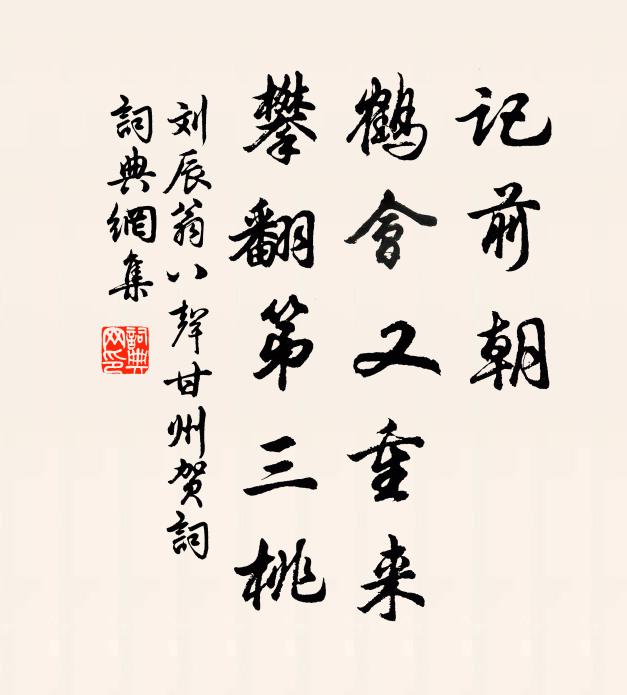 记前朝
鹤会又重来
攀翻第三桃
刘辰翁八声甘州贺词
词典网集
词典网印